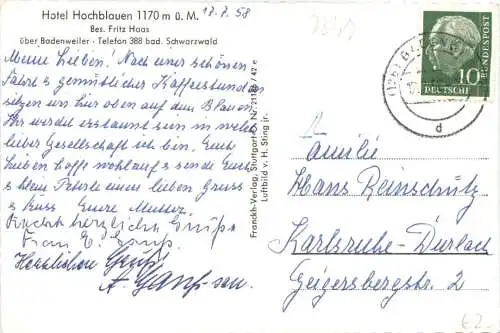 Hotel Hochblauen 1170 m ü. M.
17.7.58
Bes. Fritz Haas
über Badenweiler - Telefon 388 bad. Schwarzwald
Meine Lieben! Nach einer schönen
Fahrt & gemütlicher Kaffeestunde
sitzen wir hier oben auf dem Blauen
Ihr werdet erstaunt sein in welch
lieber Gesellschaft ich bin. Euch
Lieben hoffe wohlauf & sende Euch
& einen lieben Gruss
& Kuss Eure Mutter.
Auch herzliche Grüße
Frau E.
Herzlichen Gruß
Franckh-Verlag, Stuttgart-O Nr.
Luftbild v. H. Sting jr.
DEUTSCHE
BUNDESPOST
10
d
Familie
Hans Reinschütz
Karlsruhe-Durlach
Geigersbergstr. 2
€2